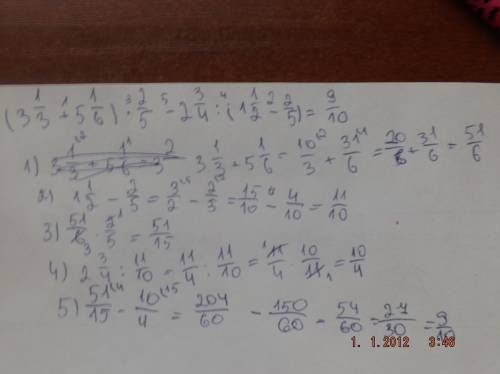 (3 1/3 + 5 1/6) · 2/5 - 2 3/4 : (1 1/2 - 2/5) = 9/10
1) 3 1/3 + 5 1/6 = 10/3 + 31/6 = 20/6 + 31/6 = 51/6
2) 1 1/2 - 2/5 = 3/2 - 2/5 = 15/10 - 4/10 = 11/10
3) 51/6 · 2/5 = 51/15
4) 2 3/4 : 11/10 = 11/4 · 11/10 = 11/4 · 10/11 = 10/4
5) 51/15 - 10/4 = 204/60 - 150/60 - 54/60 = 27/30 = 9/10
1. 1. 2012 3:48